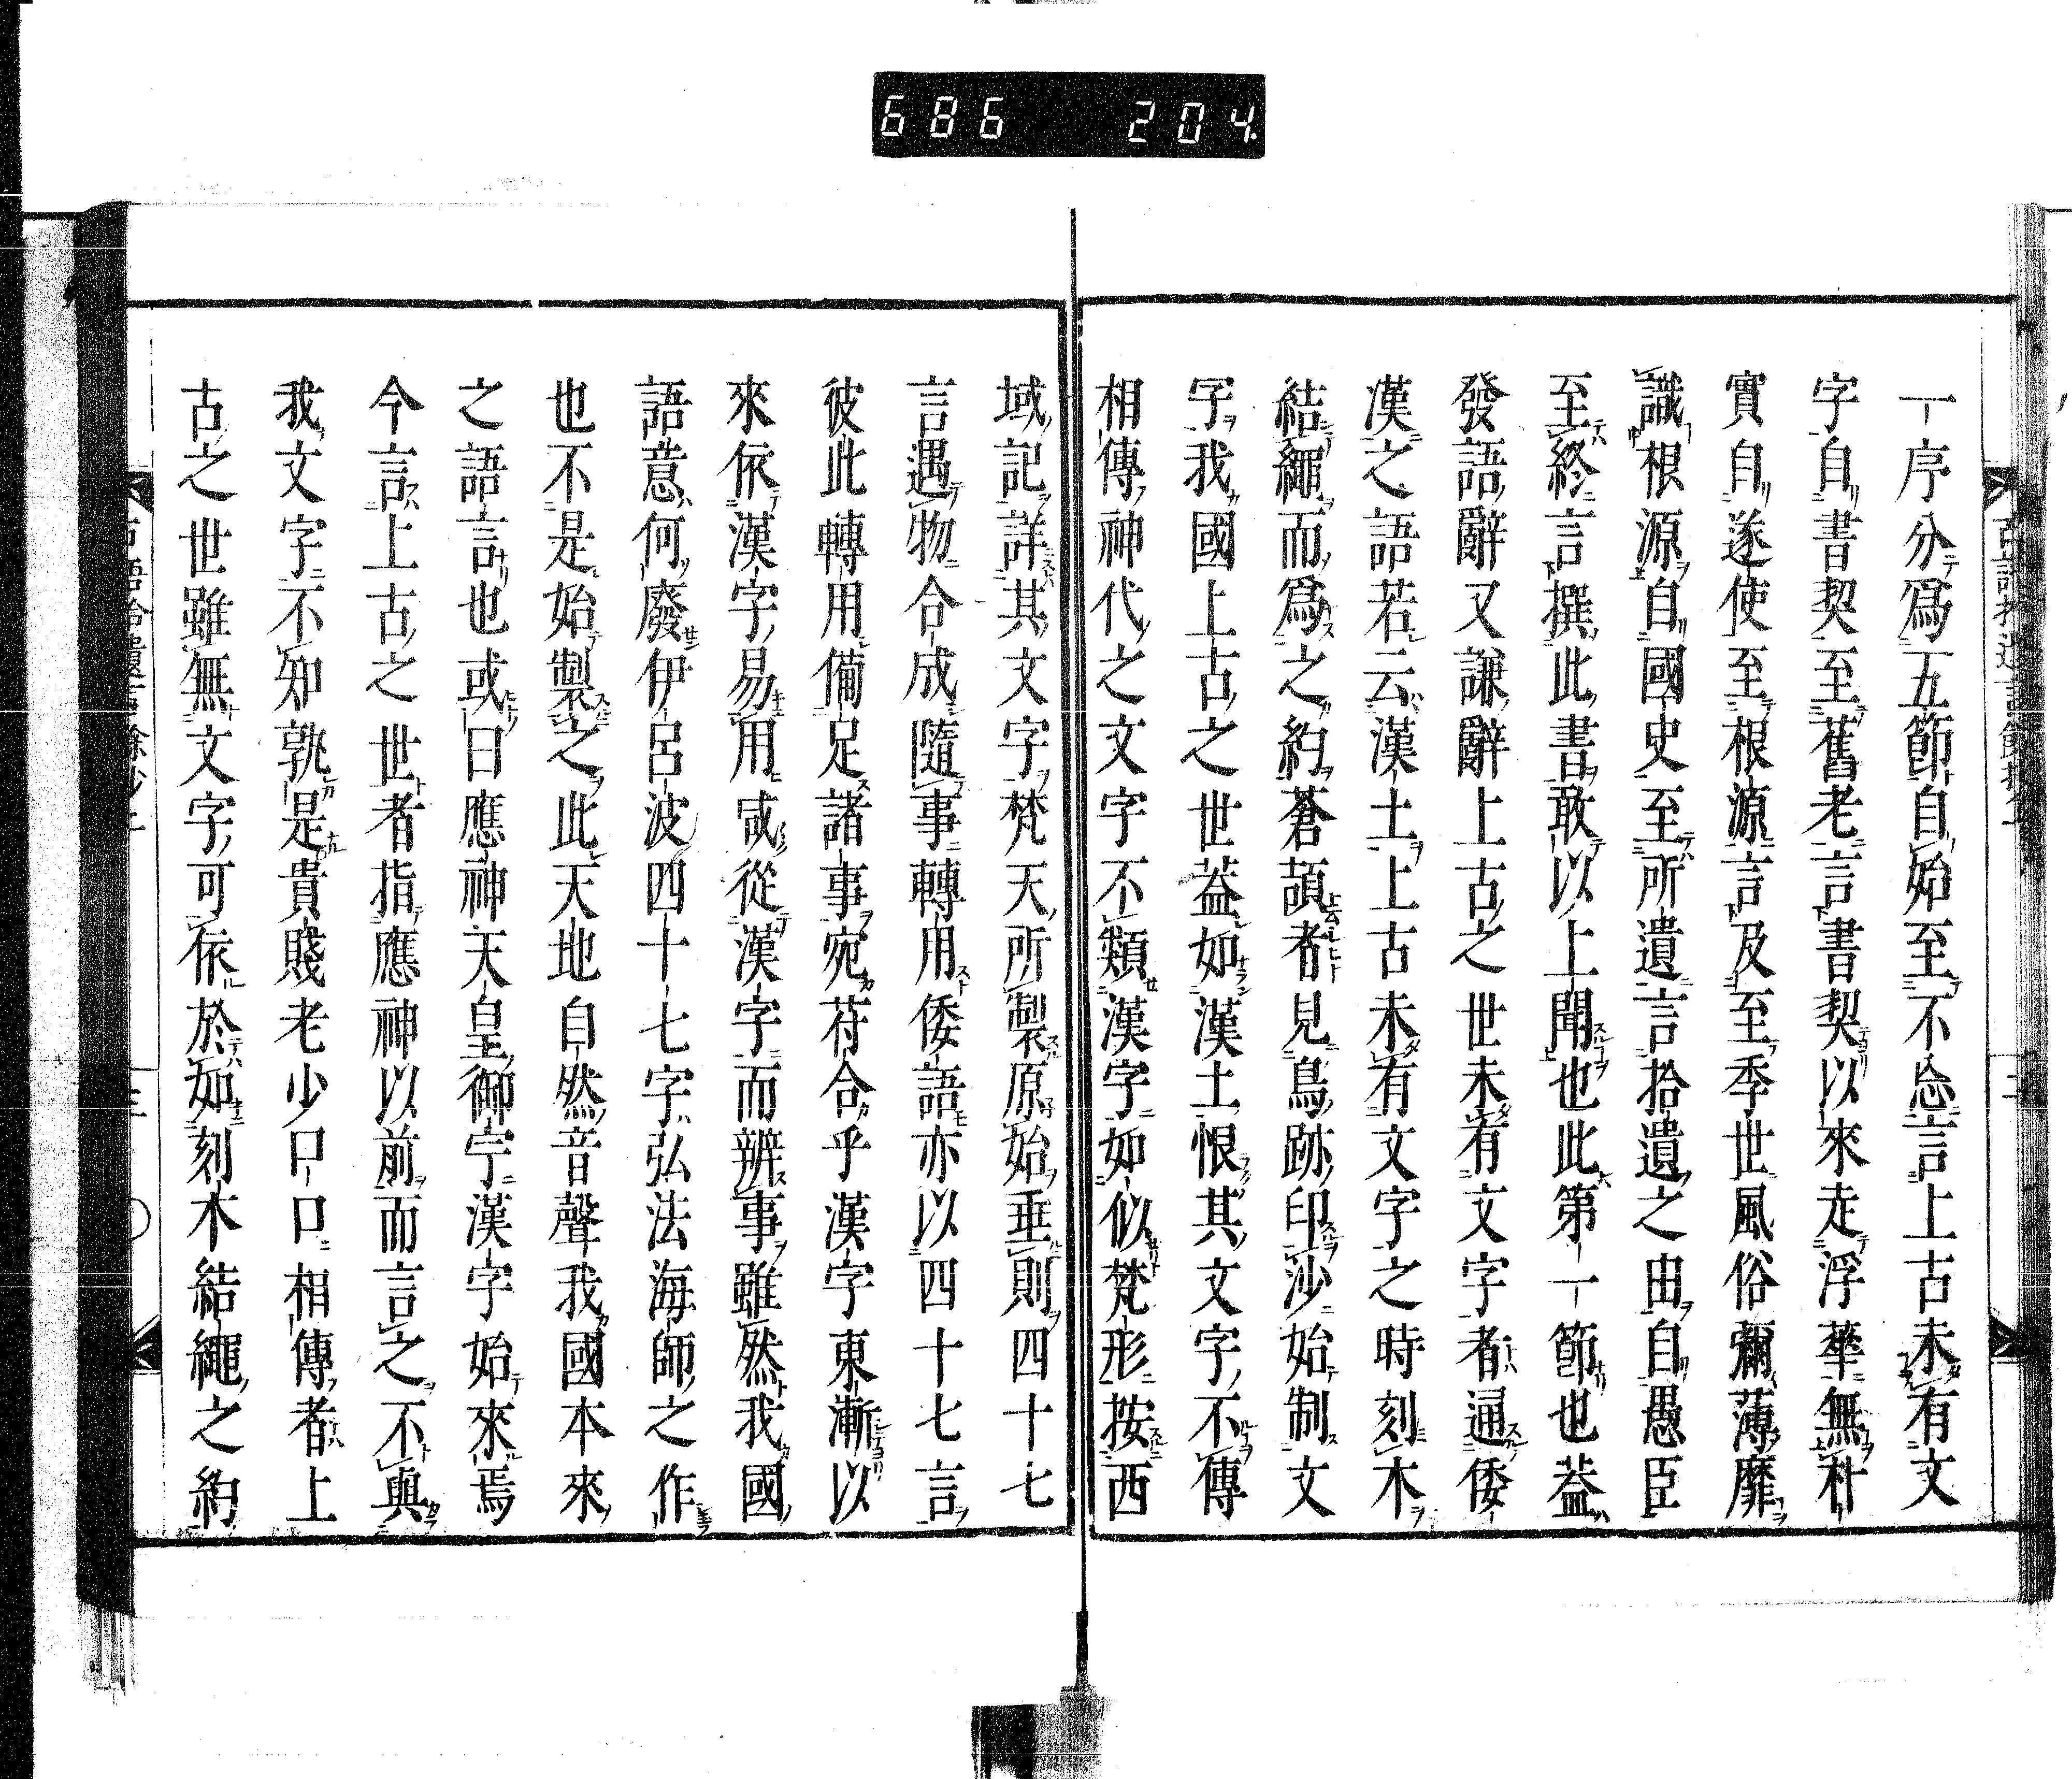 686 204
一序分爲五節自始至不忘言上古未有文
字自書契至舊老言書契以來走浮華無朴
實自遂使至根源言及至季世風俗彌薄靡
識根源自國史至所遺言拾遺之由自愚臣
至終言撰此書敢以上聞也此第一節也蓋
發語辭又謙辭上古之世未有文字者通倭
漢之語若云漢土上古未有文字之時刻木
結繩而爲之約蒼頡者見鳥跡印沙始制文
字我國上古之世蓋如漢土恨其文字不傳
相傳神代之文字不類漢字如似梵形按西
域記詳其文字梵天所製原始垂則四十七
言遇物合成隨事轉用倭語亦以四十七言
彼此轉用備足諸事宛符合乎漢字東漸以
來依漢字易用咸從漢字而辨事雖然我國
語意何廢伊呂波四十七字弘法海師之作
也不是始製之此天地自然音聲我國本來
之語言也或曰應神天皇御宇漢字始來焉
今言上古之世者指應神以前而言之不與
我文字不知孰是貴賤老少口口相傳者上
古之世雖無文字可依於如刻木結繩之約